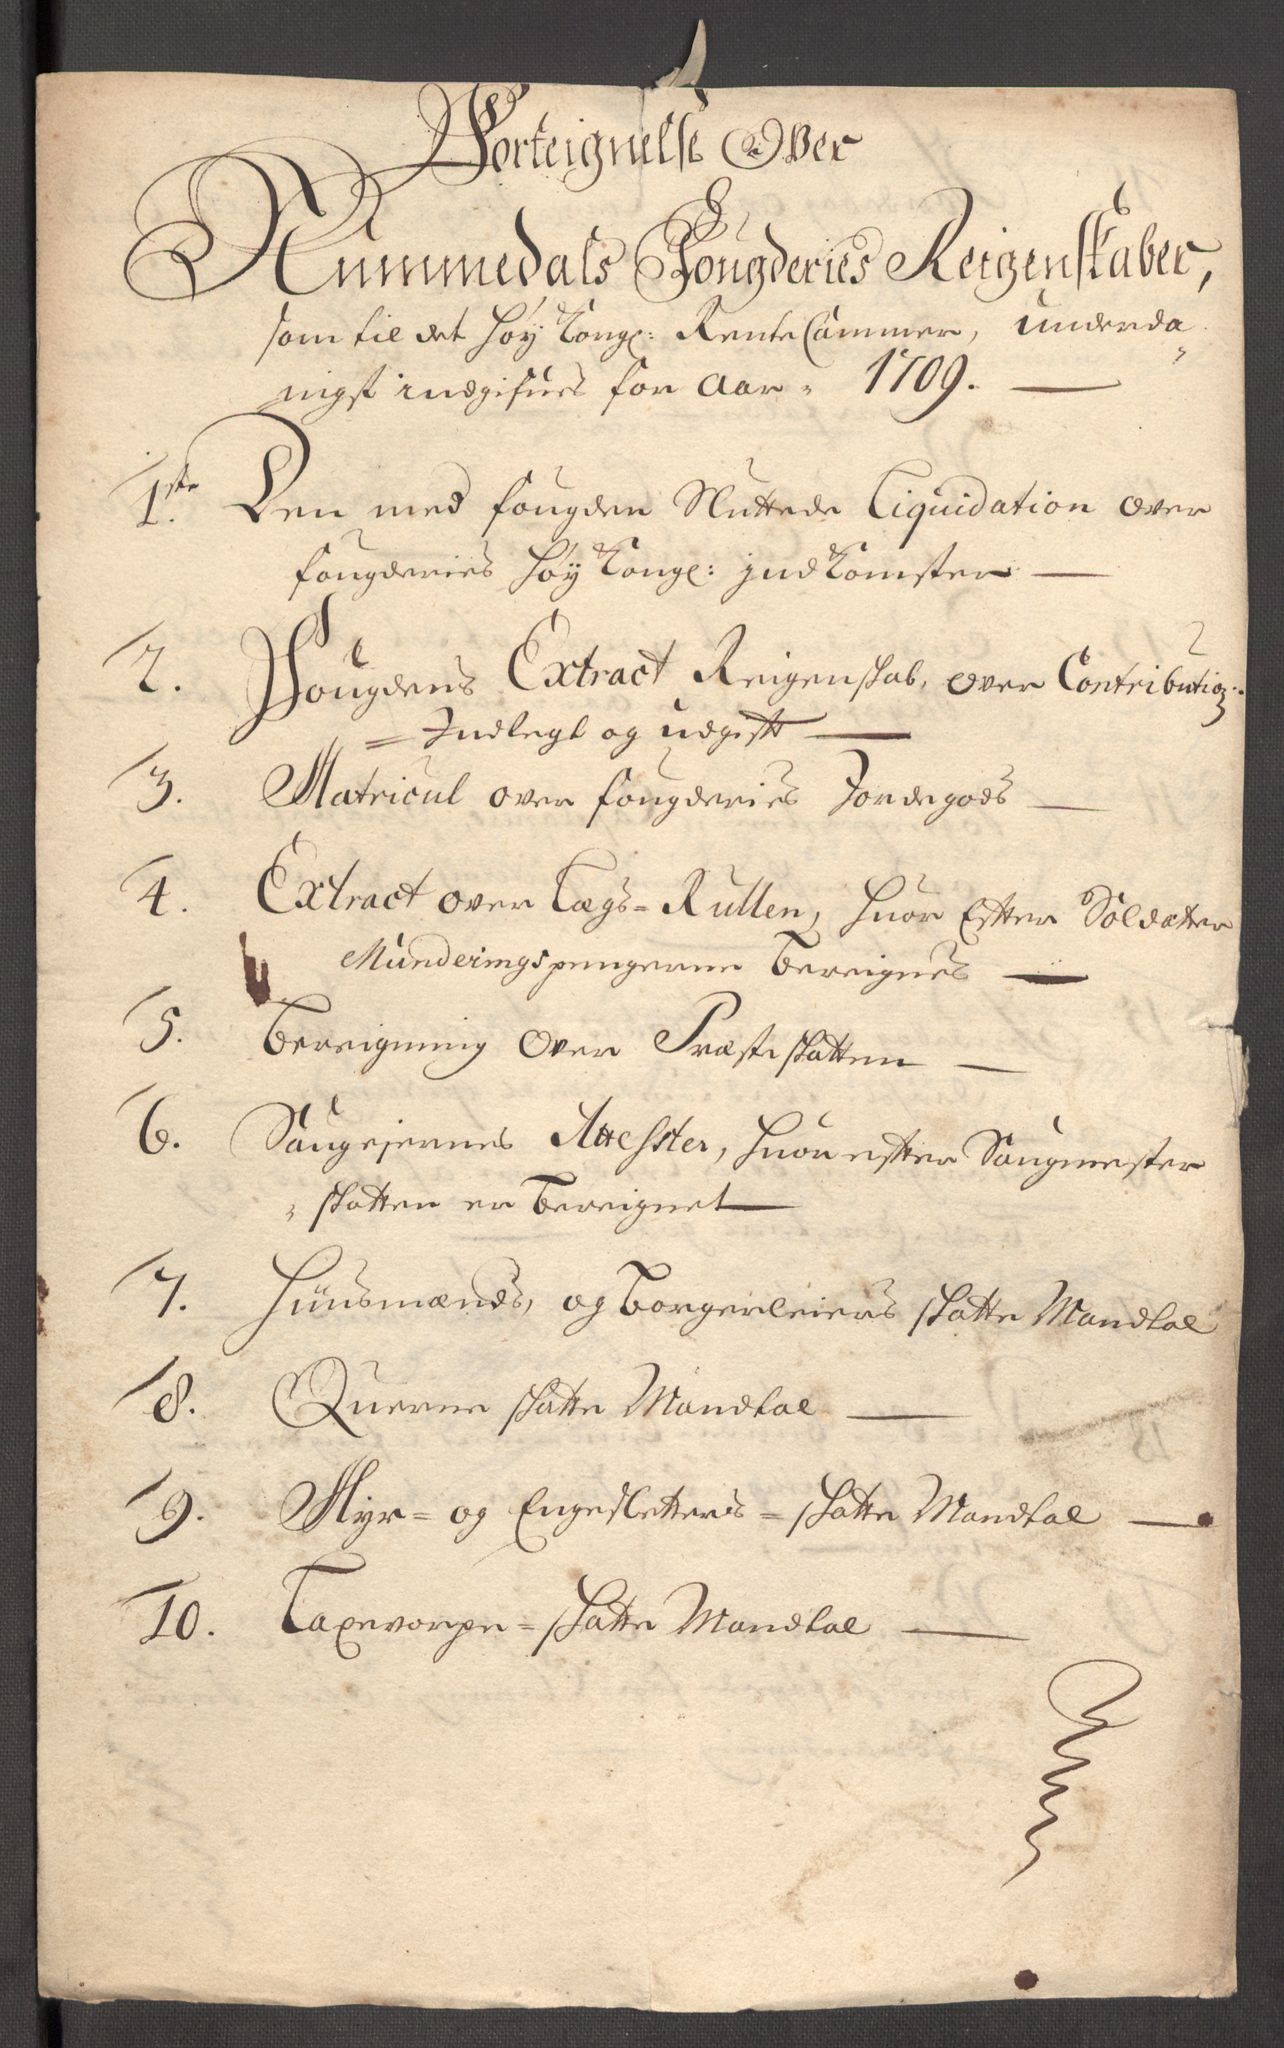 Forteignelse Over
Nummedals Fougderies Reigenskaber,
som til det høy Kongl: Rente Cammer, underda
nigst indgifues for Aar 1709.
1ste Den med fougden Sluttede Liquidation over
fougderies høy Kongl: jndkomster
2. Fougdens Extract Reigenskab, over Contribution:
Indlegt og udgift
3. Matricul over fougderies Jordegods
4. Extract over Lægs-Rullen, huor Efter Soldatter
Munderingspengerne bereignes
5. bereigning over Præste skatten
6. Saugejernes Attester, huor efter Saugmester
skatten er bereignet
7. Huusmænds, og borgerleiers skatte Mandtal
8. Querne skatte Mandtal
9. Myr- og Engesletters- skatte Mandtal
10. Laxevorpe- skatte Mandtal